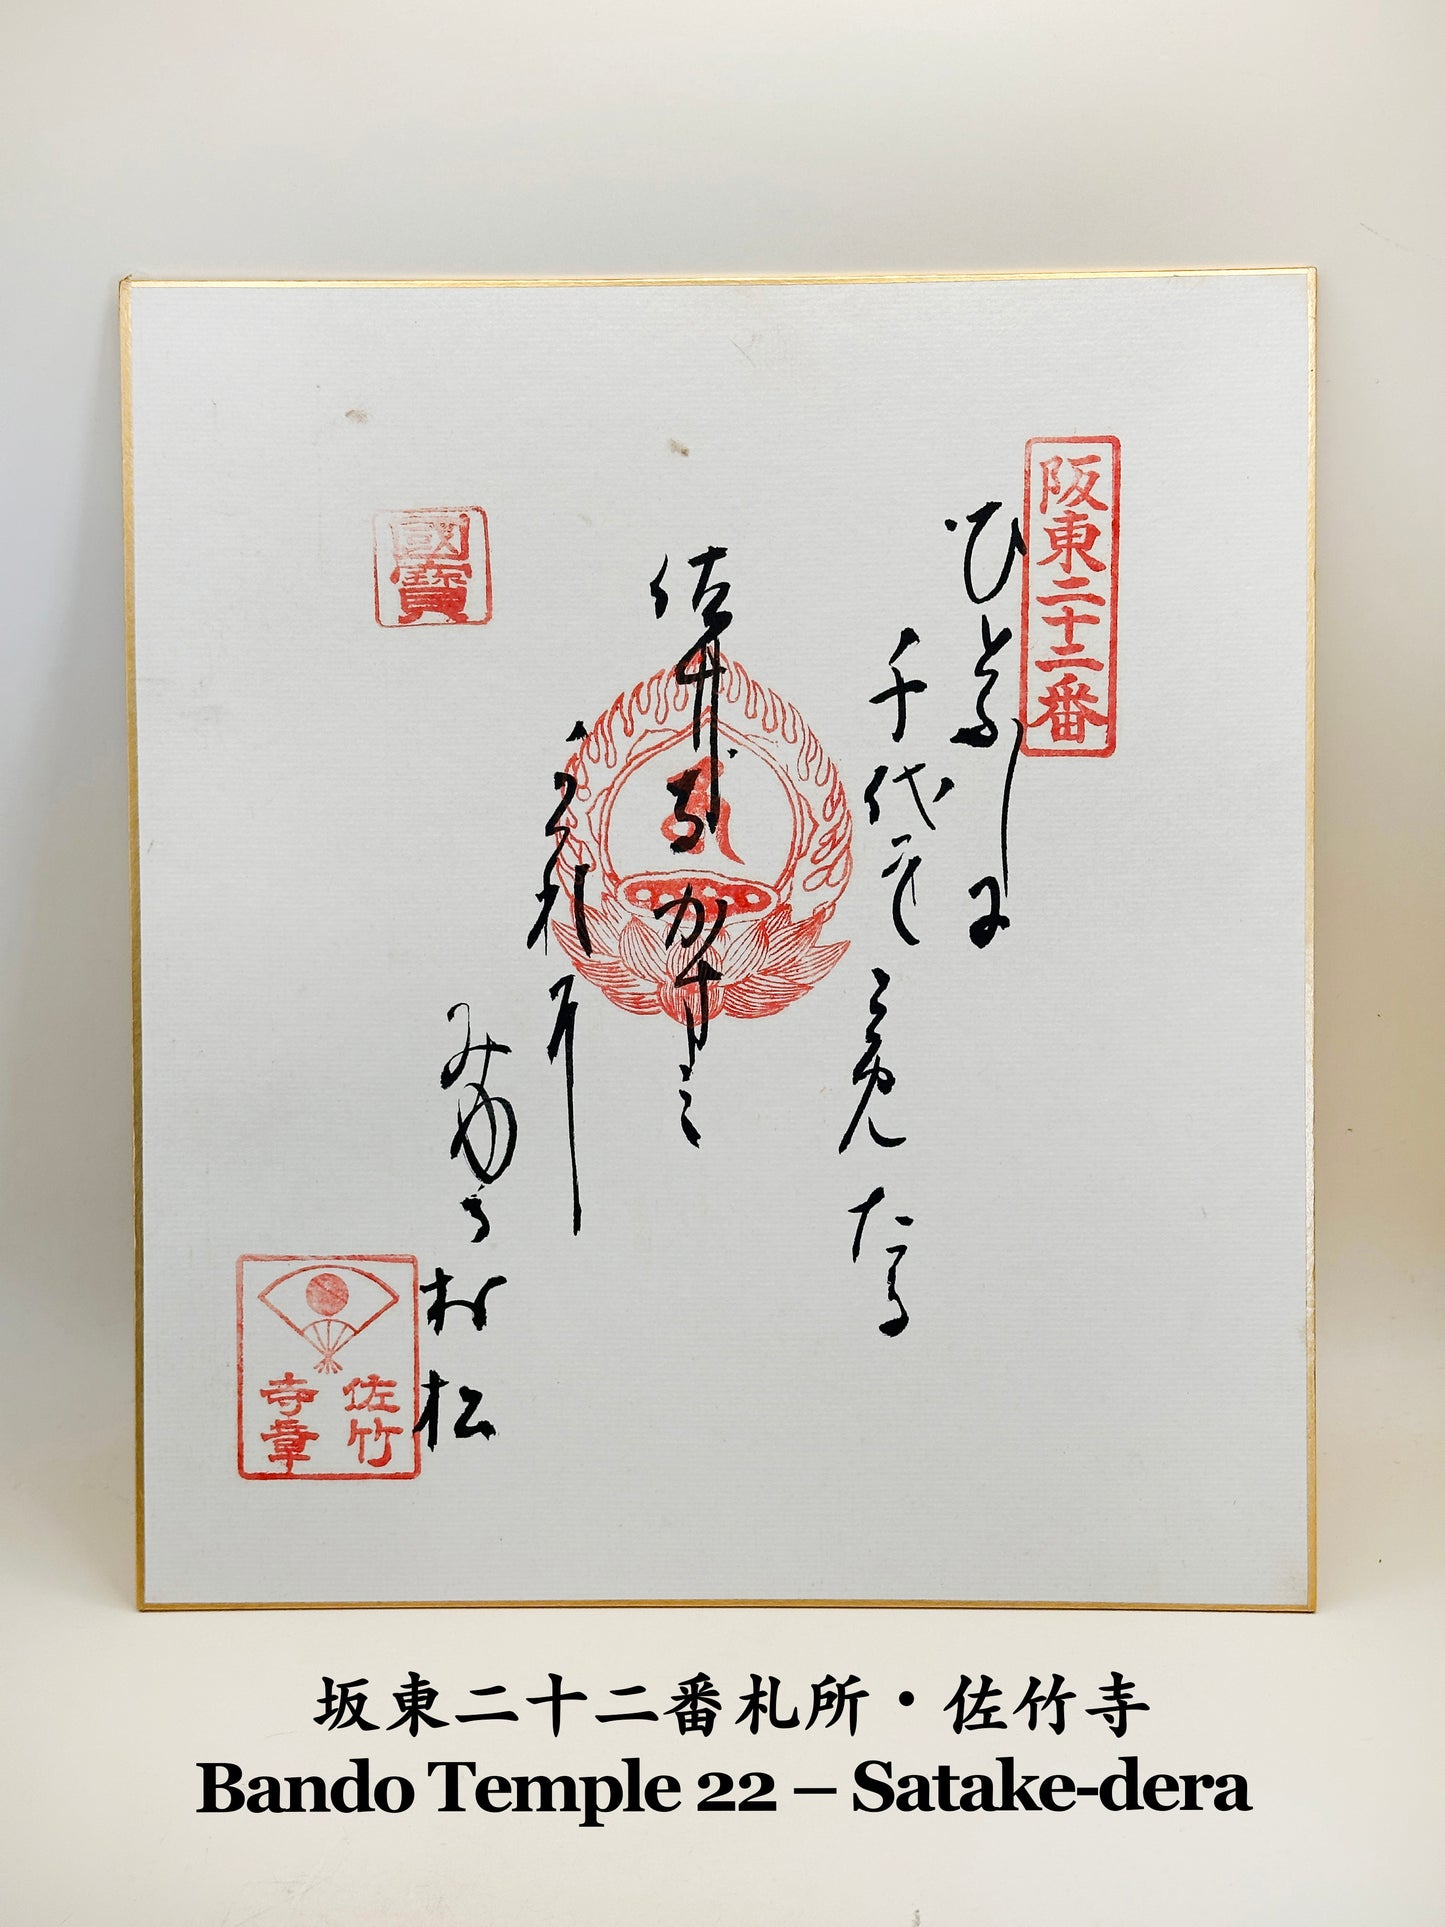 阪東二十二番
ひとふしに
千代をこ免たる
佐竹寺かすミ
がくれに
みゆる村松
國寶
佐竹
寺章
坂東二十二番札所・佐竹寺
Bando Temple 22 – Satake-dera